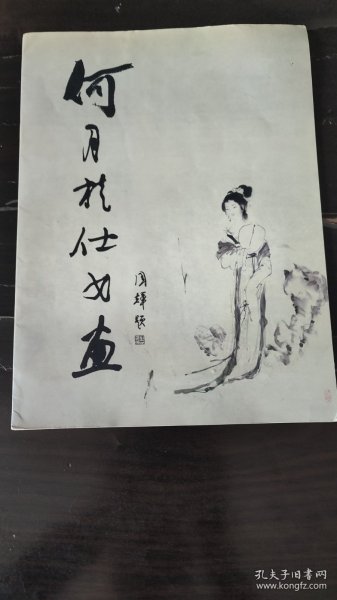 何月桂仕女画
国辉题
孔夫子旧书网
www.kongfz.com